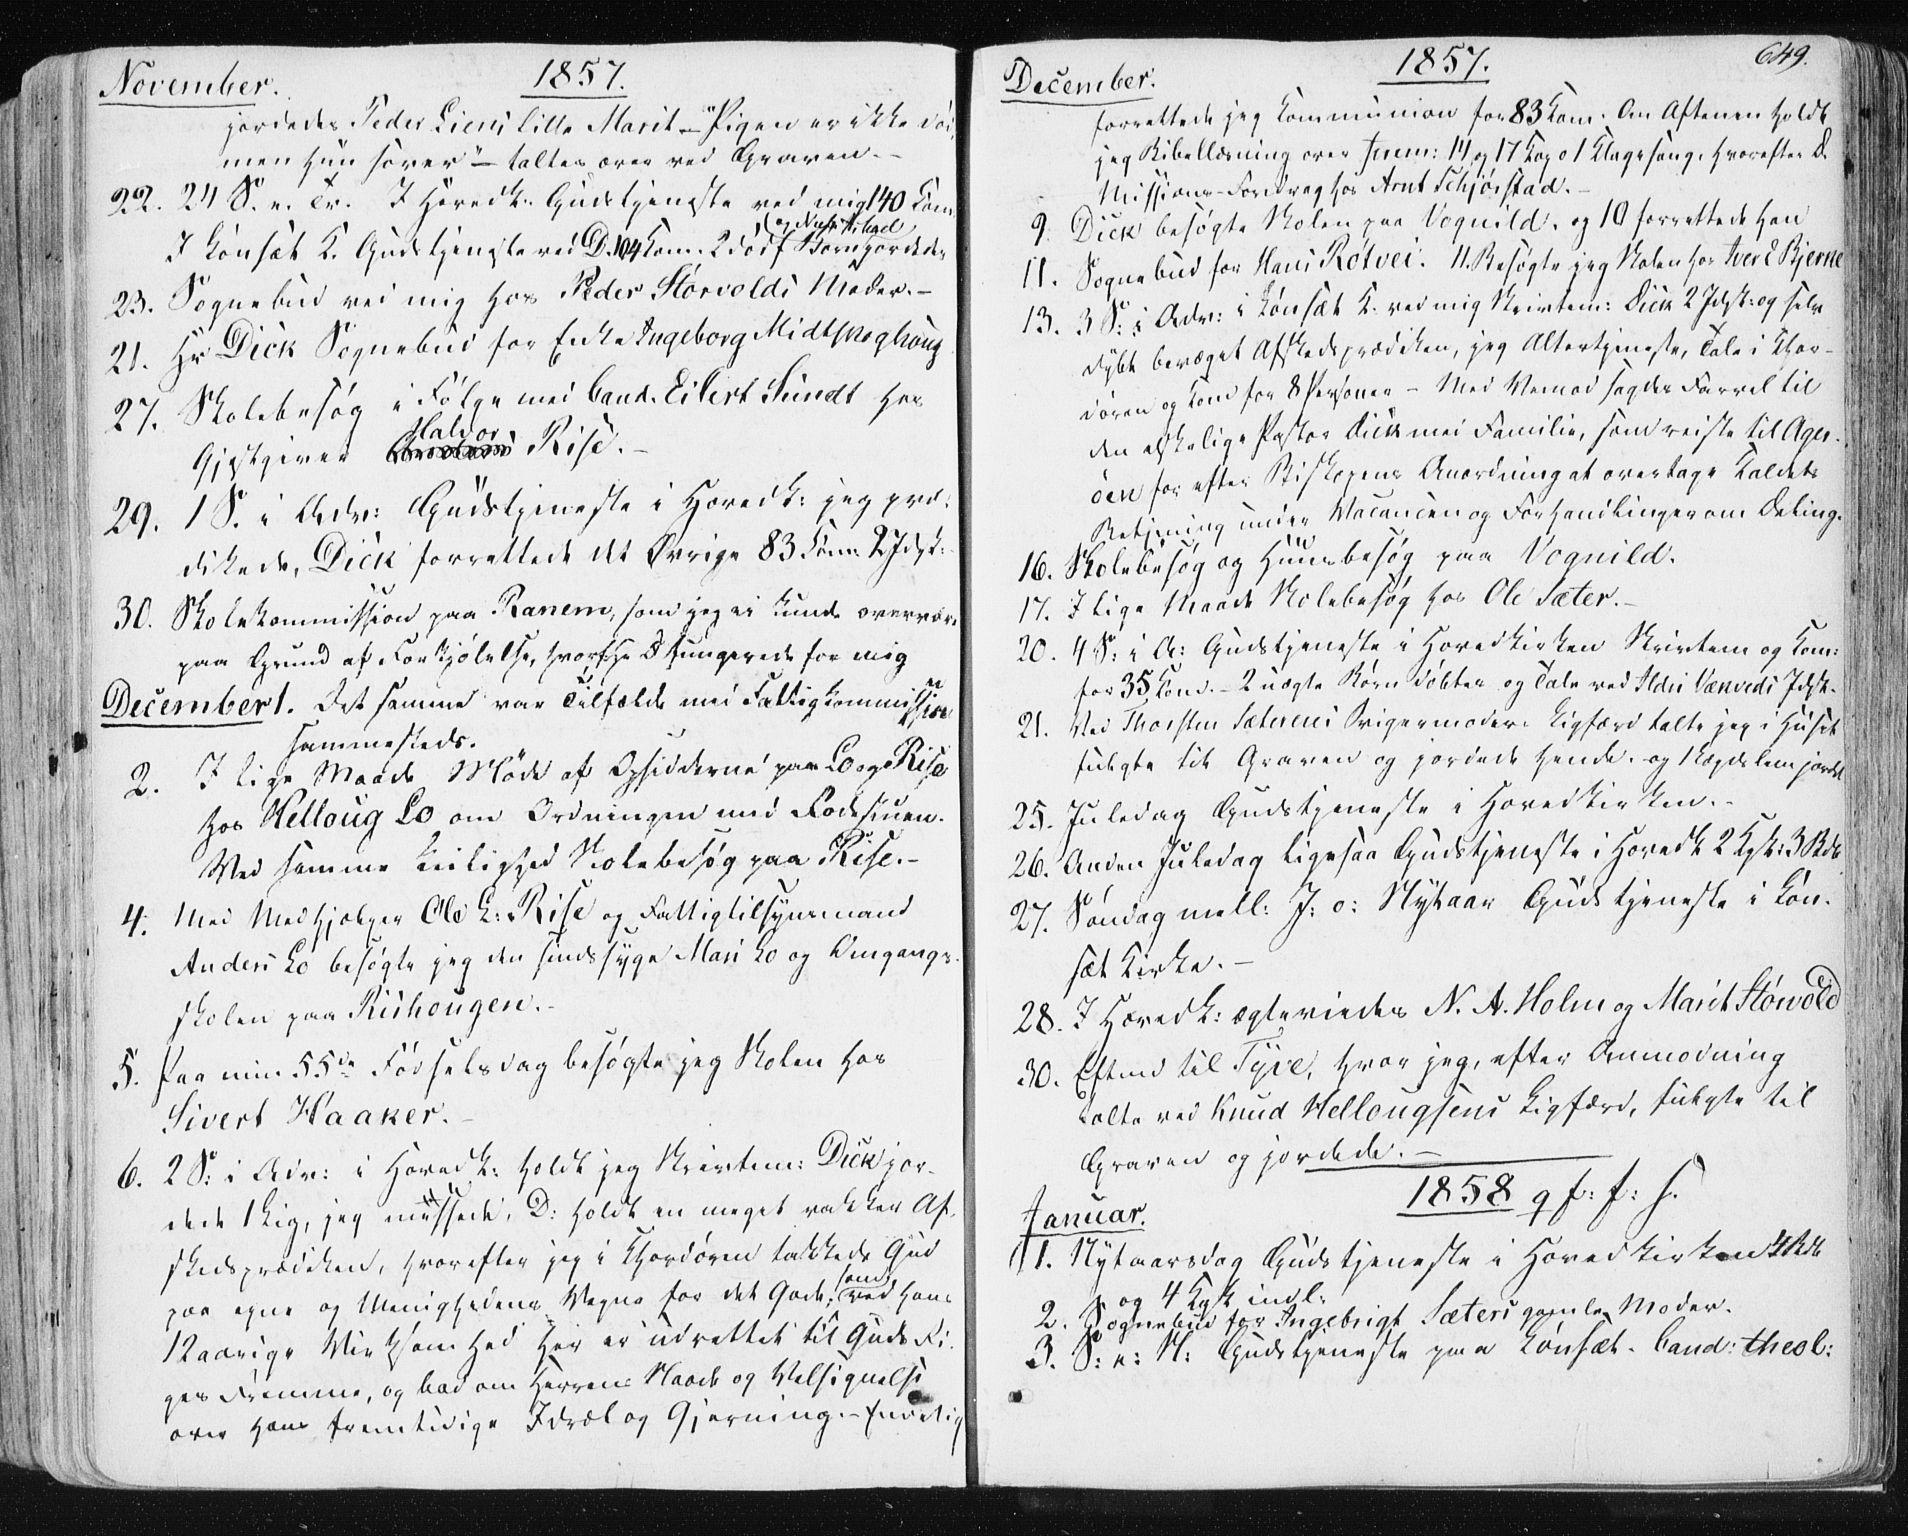 November. 1857.
jordedes Peder Liens lille Marit – "Pigen er ikke død,
men hun sover" – taltes over ved Graven. –
22. 24 S. e. Tr. I Hovedk. Gudstjeneste ved mig 140 Kom.
I Lønset K. Gudstjeneste ved D. 104 Kom. 2 døbf. Børn jordedes
23. Sognebud ved mig hos Peder Størvolds Moder. –
21. Hr Dick Sognebud for Enke Ingeborg Midtskoghoug
27. Skolebesøg i Følge med Cand. Eilert Sundt hos
Gjestgiver Halvor Rise. –
29. 1 S. i Adv: Gudstjeneste i Hovedk: jeg præ-
dikede, Dick forrettede det Øvrige 83 Kom. 2 Idsk:
30. Skolekommission paa Ranem, som jeg ei kunde overvære
paa Grund af Forkjølelse, hvorfor Hr D fungerede for mig
December 1. Det samme var Tilfælde med Fattigkommission
sammesteds.
2. I lige Maade Møde af Opsidderne paa Lo og Rise
hos Helloug Lo om Ordningen med Rodestuen.
Ved samme Leilighed Skolebesøg paa Rise. –
4. Med Medhjelper Ole L: Rise og Fattigtilsynsmand
Anders Lo besøgte jeg den sindssyge Mari Lo og Omgangs-
skolen paa Rishougen. –
5. Paa min 55de Fødselsdag besøgte jeg Skolen hos
Sivert Haaker. –
6. 2 S: i Adv: i Hovedk: holdt jeg Skriftem: Dick jor-
dede 1 Lig, jeg messede, D: holdt en meget vakker Af-
skedsprædiken, hvorefter jeg i Khordøren takkede Gud
paa egne og Menighedens Vegne for det Gode, som ved Hans
12aarige Virksomhed her er udrettet til Guds Ri-
ges Fremme, og bad om Herrens Naade og Velsignelse
over hans fremtidige Idræt og Gjerning. – Endelig
December. 1857. 649.
forrettede jeg Kommunion for 83 Kom. Om Aftenen holdt
jeg Bibellæsning over Jerem: 14 og 17 Kap o 1 Klagesang, hvorefter D.
Missions-Foredrag hos Arnt Schjørstad. –
9. Dick besøgte Skolen paa Vognild, og 10 forrettede han
11. Sognebud for Hans Røtvei. 11. Besøgte jeg Skolen hos Iver E Bjerke
13. 3 S: i Adv: i Lønset K. ved mig Skriftem: Dick 2 Idsk: og selv
dybt bevæget Afskedsprædiken, jeg Altertjeneste, Tale i Khor-
døren og Kom for 8 Personer – Med Vemod sagdes Farvel til
den elskelige Pastor Dick med Familie, som reiste til Ager-
øen for efter Biskopens Anordning at overtage Kaldets
Betjening under Vacancen og Forhandlinger om Deling.
16. Skolebesøg og Huusbesøg paa Vognild.
17. I lige Maade Skolebesøg hos Ole Sæter. –
20. 4 S: i A: Gudstjeneste i Hovedkirken Skriftem og Kom:
for 35 Kom. – 2 uægte Børn døbtes og Tale ved Ildri Vænveds Idsk.
21. Ved Thorsten Sæterens Svigermoders Ligfærd talte jeg i Huset
fulgte til Graven og jordede hende. og 1 Lægdslem jordet
25. Juledag Gudstjeneste i Hovedkirken. –
26. Anden Juledag ligesaa Gudstjeneste i Hovedk 2 Kgk: 3 Bdb
27. Søndag mell: J: o: Nytaar Gudstjeneste i Løn-
set Kirke. –
28. I Hovedk: ægteviedes N. A. Holm og Marit Størvold
30. Eftmd til Tyve, hvor jeg, efter Anmodning
talte ved Knud Hellougsens Ligfærd, fulgte til
Graven og jordede. –
1858 q f: f: s.
Januar.
1. Nytaarsdag Gudstjeneste i Hovedkirken 4 Bdb
og 4 Kgk indl:
2. Sognebud for Ingebrigt Sæters gamle Moder.
3. S: e: N: Gudstjeneste paa Lønset. Cand: theol: